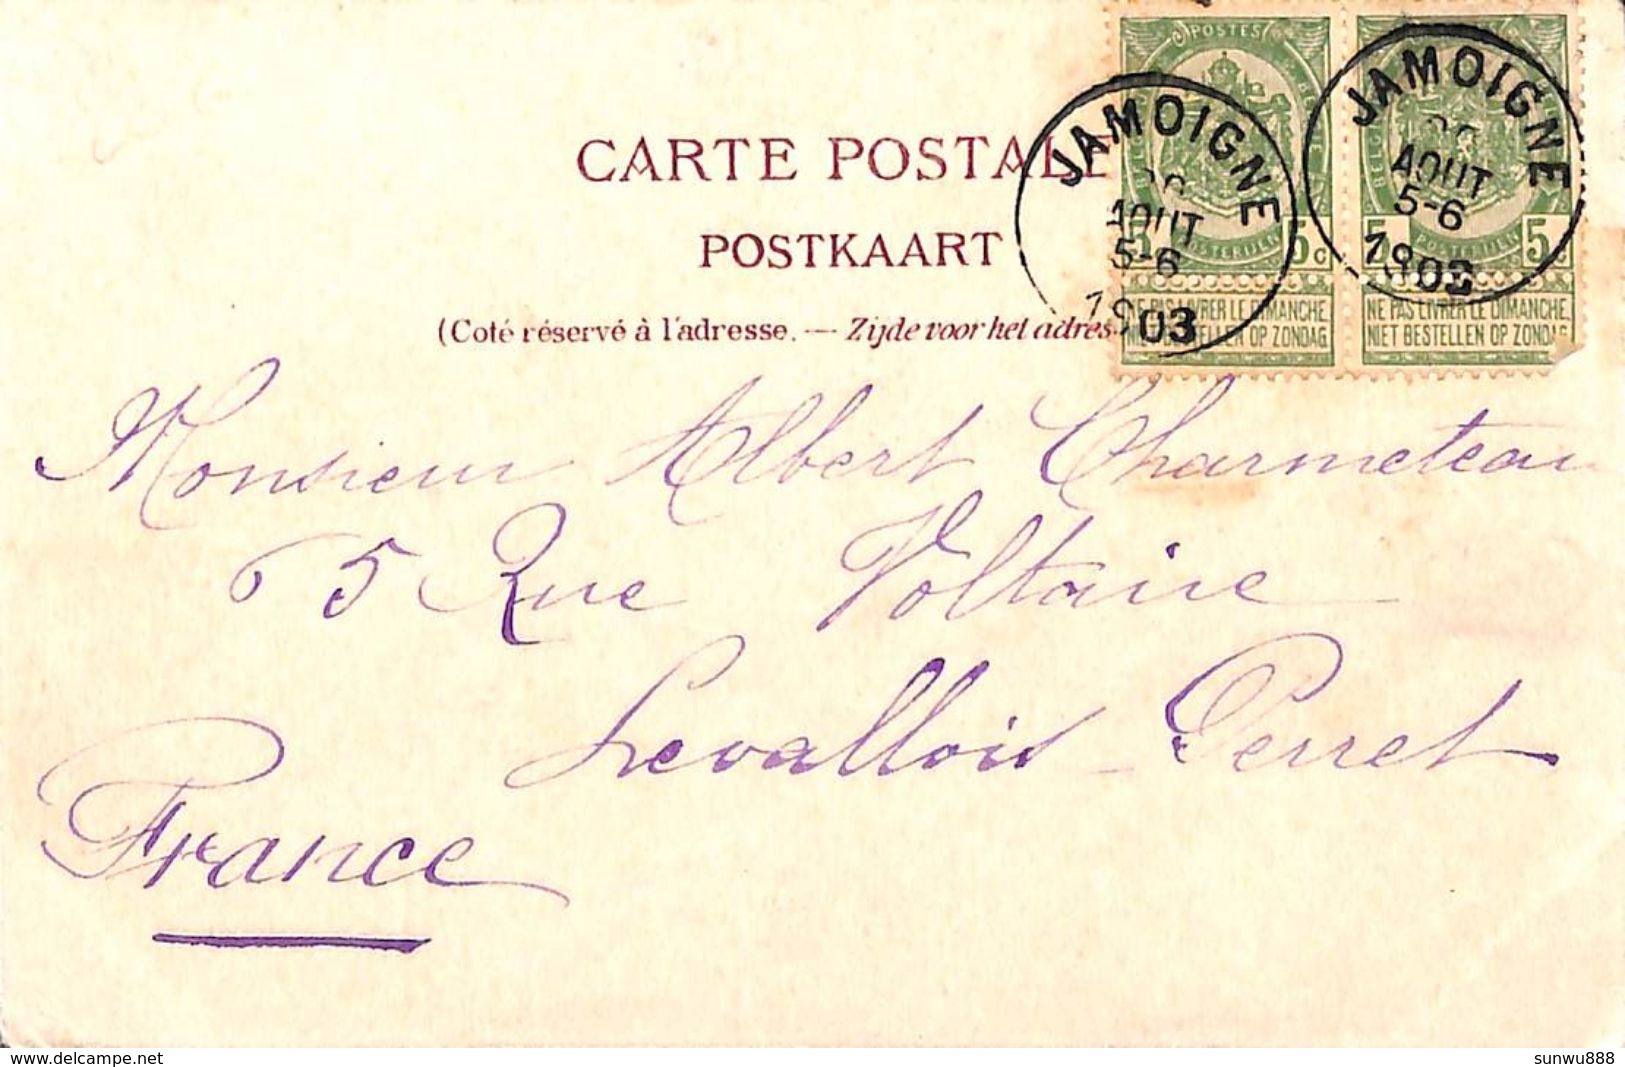 CARTE POSTALE
POSTKAART
(Coté réservé à l'adresse. — Zijde voor het adres
POSTES
5 POSTERIJEN 5c
NE PAS LIVRER LE DIMANCHE
NIET BESTELLEN OP ZONDAG
BELGIQUE
5 POSTERIJEN 5c
NE PAS LIVRER LE DIMANCHE
NIET BESTELLEN OP ZONDAG
JAMOIGNE
AOUT
5-6
1903
JAMOIGNE
AOUT
5-6
1903
Monsieur Albert Charmeteau
65 Rue Voltaire
Levallois-Perret
France
www.delcampe.net
sunwu888